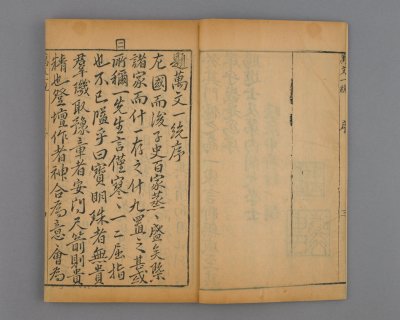 題萬文一統序
左國而後子史百家蒸〻盛矣槩
諸家而什一存之什九置之甚或
所稱一先生言僅寥〻一二屈指
也不已隘乎曰寶明珠者無貴
羣璣取豫章者安問尺箭則貴
精也登壇作者神合為意會為
萬文一統
序